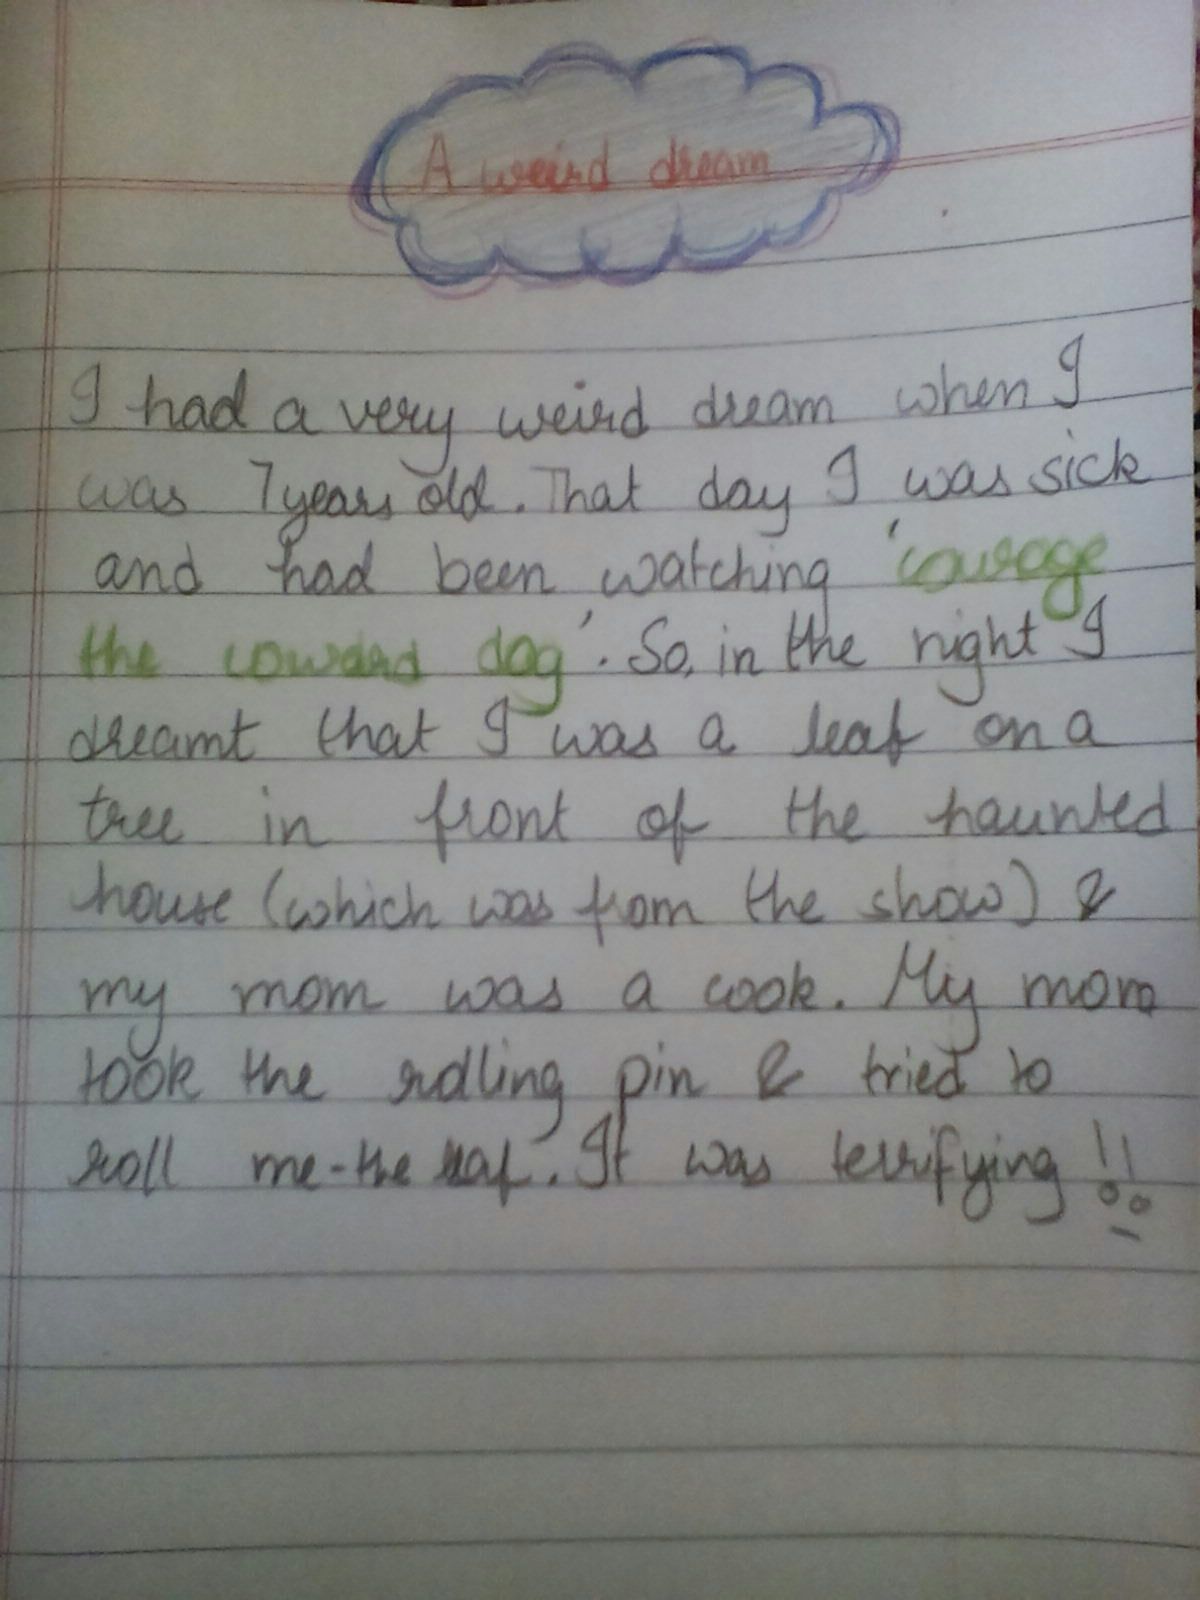 A weird dream
I had a very weird dream when I
was 7 years old. That day I was sick
and had been watching 'courage
the coward dog'. So, in the night I
dreamt that I was a leaf on a
tree in front of the haunted
house (which was from the show) &
my mom was a cook. My mom
took the rolling pin & tried to
roll me-the leaf. It was terrifying!!